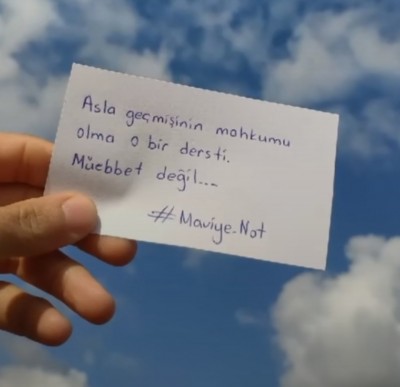 Asla geçmişinin mahkumu
olma o bir dersti.
Müebbet değil...
#Maviye.Not